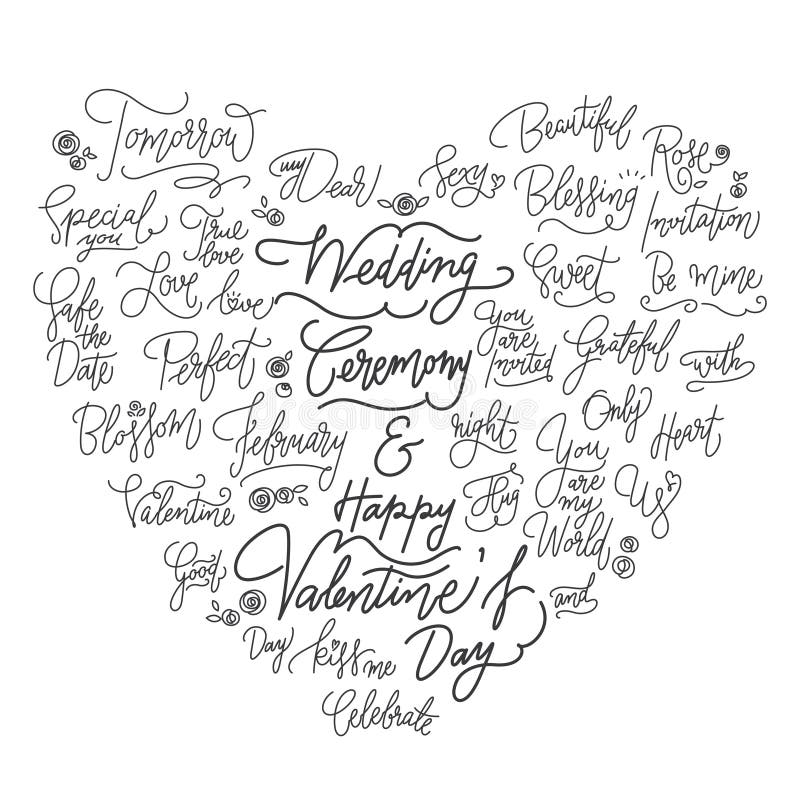 Tomorrow
my Dear
Sexy
Beautiful
Rose
Special
you
True
love
Blessing
Invitation
Wedding
Love
love
Sweet
Be mine
Safe
the
Date
Perfect
Ceremony
You
are
Invited
Grateful
with
Blossom
February
&
night
Only
Heart
Valentine
Happy
Hug
You
are
my
World
Us
Good
Valentine's
Day
and
Day
kiss me
Celebrate